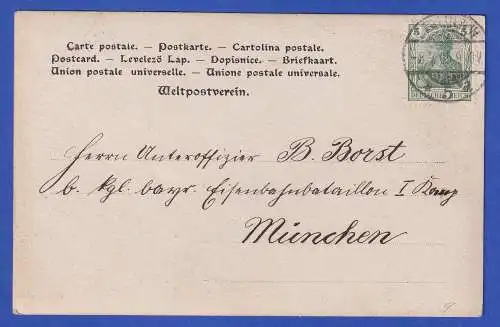 Carte postale. — Postkarte. — Cartolina postale.
Postcard. — Levelező Lap. — Dopisnice. — Briefkaart.
Union postale universelle. — Unione postale universale.
Weltpostverein.
DEUTSCHES REICH
Herrn Unteroffizier B. Borst
b. kgl. bayr. Eisenbahnbataillon I Komp
München